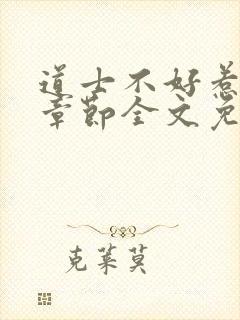 道士不好惹
章节全文免
克莱莫